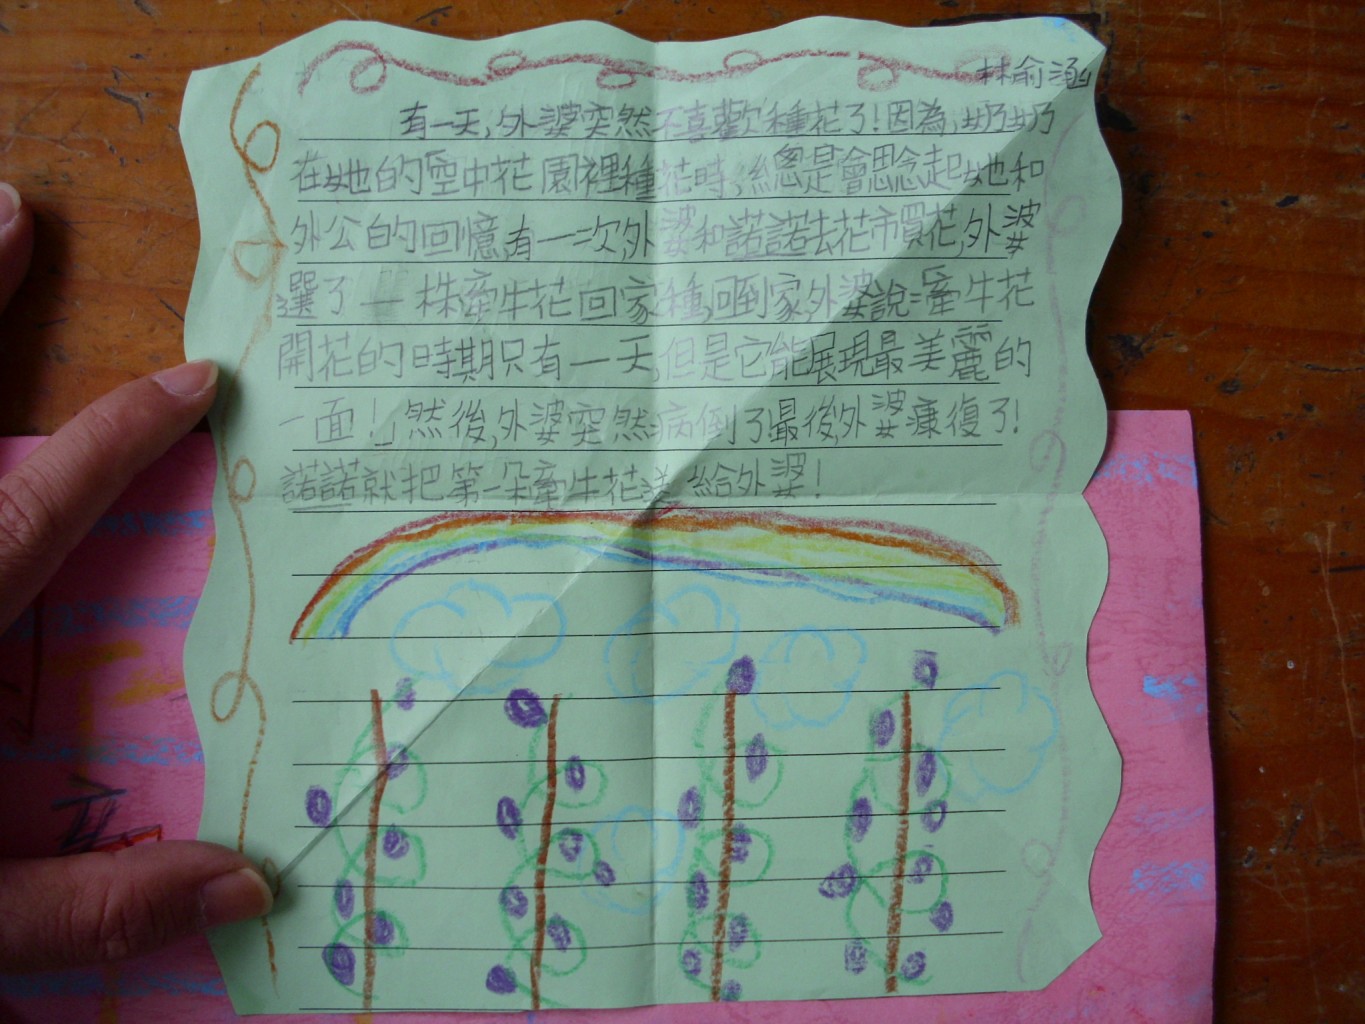 林俞涵
有一天,外婆突然不喜歡種花了!因為,奶奶
在她的空中花園裡種花時,總是會思念起她和
外公的回憶,有一次,外婆和諾諾去花市買花,外婆
選了一株牽牛花回家種,回到家,外婆說:「牽牛花
開花的時期只有一天,但是它能展現最美麗的
一面!」然後,外婆突然病倒了!最後,外婆康復了!
諾諾就把第一朵牽牛花送給外婆!